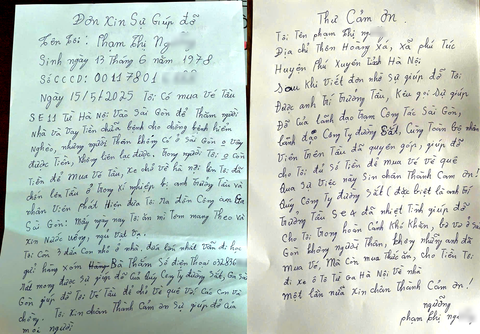 Đơn Xin Sự Giúp đỡ
Tên Tôi: Phạm Thị Ng
Sinh ngày 13 tháng 6 năm 1978
Số CCCD: 00117801
Ngày 15/5/2025 Tôi Có mua Vé Tàu
SE11 Từ Hà Nội Vào Sài Gòn để Thăm người
Nhà và Vay Tiền chữa bệnh cho chồng bệnh hiểm
nghèo, nhưng người Thân không Có ở Sài Gòn o Vay
được Tiền, không liên lạc được, Trong người Tôi o Còn
Tiền để Mua Vé Tàu, Xe chở về hà nội lên Tôi đã
chốn lên Tàu ở Trong xí nghiệp bị anh Trưởng Tàu và
nhân Viên Phát Hiện đưa Tôi Ra đồn Công an
Sài Gòn: Mấy ngày nay Tôi ăn mì tôm mang Theo và
xin Nước uống, ngủ Vật Vạ.
Tôi Còn 3 đứa Con nhỏ ở nhà, đứa lớn nhất Vẫn đi học
gửi hàng xóm Bà Thắm Số điện Thoại 032836
Rất mong được Sự giúp đỡ Của Quý Công ty đường Sắt, Ga Sài
Gòn giúp đỡ Tôi Vé Tàu để chở Về quê Với Các Con và
chồng. Tôi Xin chân Thành Cảm ơn Sự giúp đỡ Của
mọi người
Thư Cảm Ơn.
Tôi Tên phạm Thị ng
Địa chỉ Thôn Hoàng Xá, Xã phú Túc
Huyện Phú Xuyên Tỉnh Hà Nội
Sau khi Viết đơn nhờ Sự giúp đỡ Tôi
Được anh Trí Trưởng Tàu, Kêu gọi Sự giúp
Đỡ Của lãnh đạo Trạm Công Tác Sài Gòn,
lãnh đạo Công Ty đường Sắt, Cùng Toàn bộ nhân
Viên Trên Tàu đã quyên góp, giúp đỡ
Cho Tôi đủ Số Tiền để Mua Vé Về quê
Qua Sự Việc này Xin chân Thành Cảm ơn!
Quý Công ty đường Sắt (đặc biệt là anh Trí
Trưởng Tàu SE4 đã nhiệt Tình giúp đỡ
Cho Tôi, Trong hoàn Cảnh Khó Khăn, bơ vơ ở Sài
Gòn không người Thân, không những anh đã
mua Vé, Mà Còn mua thức ăn, cho Tiền Tôi
đi xe ô Tô Từ Ga Hà Nội Về nhà
một lần nữa Xin chân Thành Cảm ơn!
người
phạm thị ng